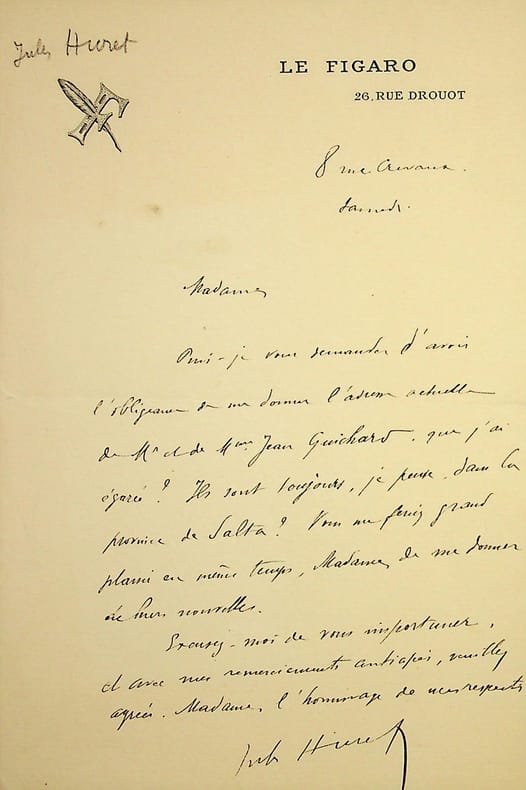 Jules Huret
LE FIGARO
26, RUE DROUOT
8 rue Crevaux.
Samedi.
Madame,
Puis-je vous demander d'avoir
l'obligeance de me donner l'adresse actuelle
de Mr et de Mme Jean Guichard, que j'ai
égarée ? Ils sont toujours, je pense, dans la
province de Salta ? Vous me feriez grand
plaisir en même temps, Madame, de me donner
de leurs nouvelles.
Excusez-moi de vous importuner,
et avec mes remerciements anticipés, veuillez
agréer, Madame, l'hommage de mes respects
Jules Huret